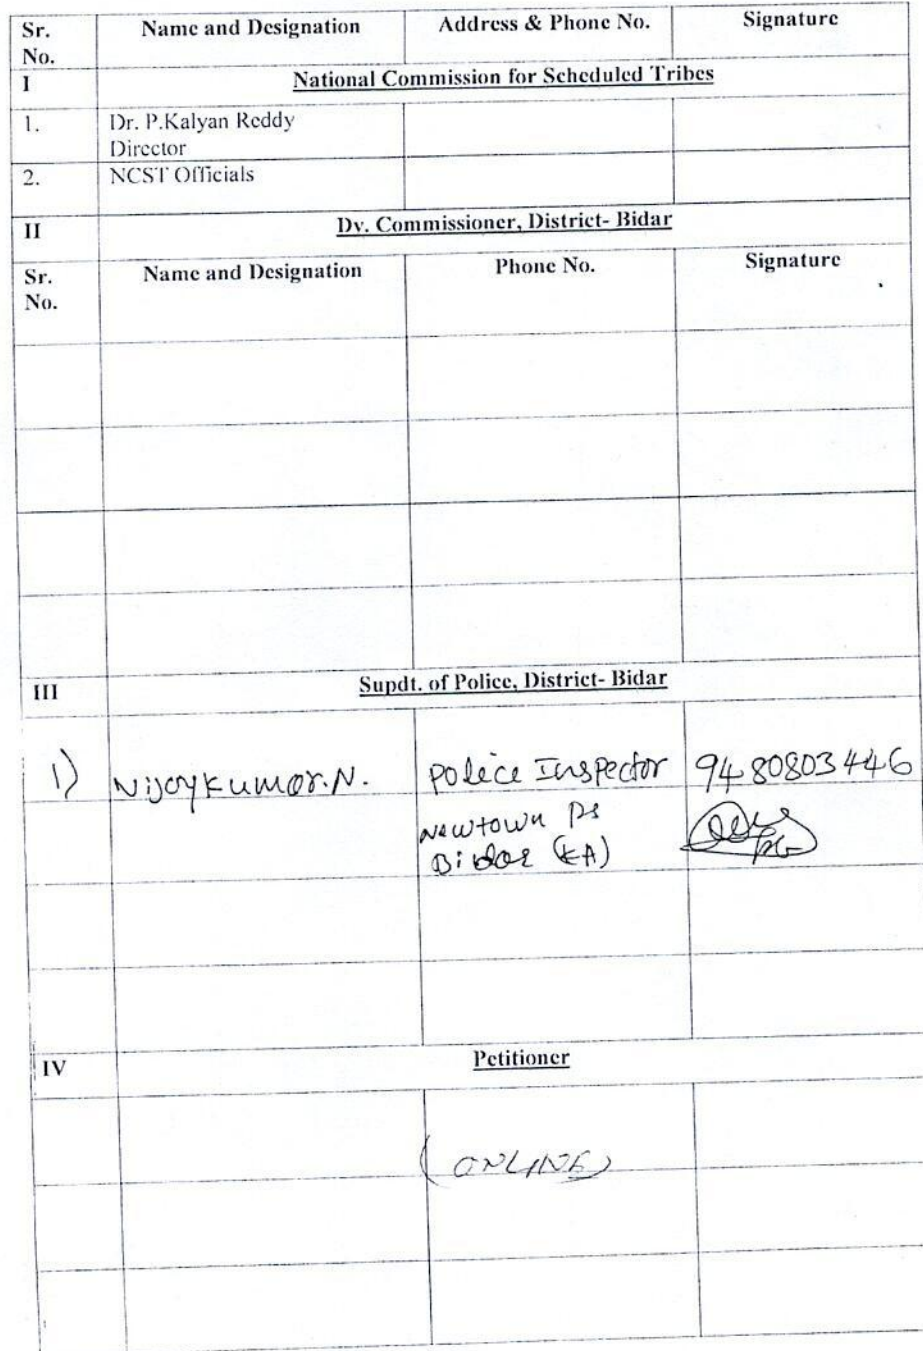 Sr. No. Name and Designation Address & Phone No. Signature
I National Commission for Scheduled Tribes
1. Dr. P.Kalyan Reddy
Director
2. NCST Officials
II Dy. Commissioner, District- Bidar
Sr. No. Name and Designation Phone No. Signature
III Supdt. of Police, District- Bidar
1) Vijaykumar.N. Police Inspector 9480803446
Newtown PS
Bidar (KA)
IV Petitioner
(ONLINE)